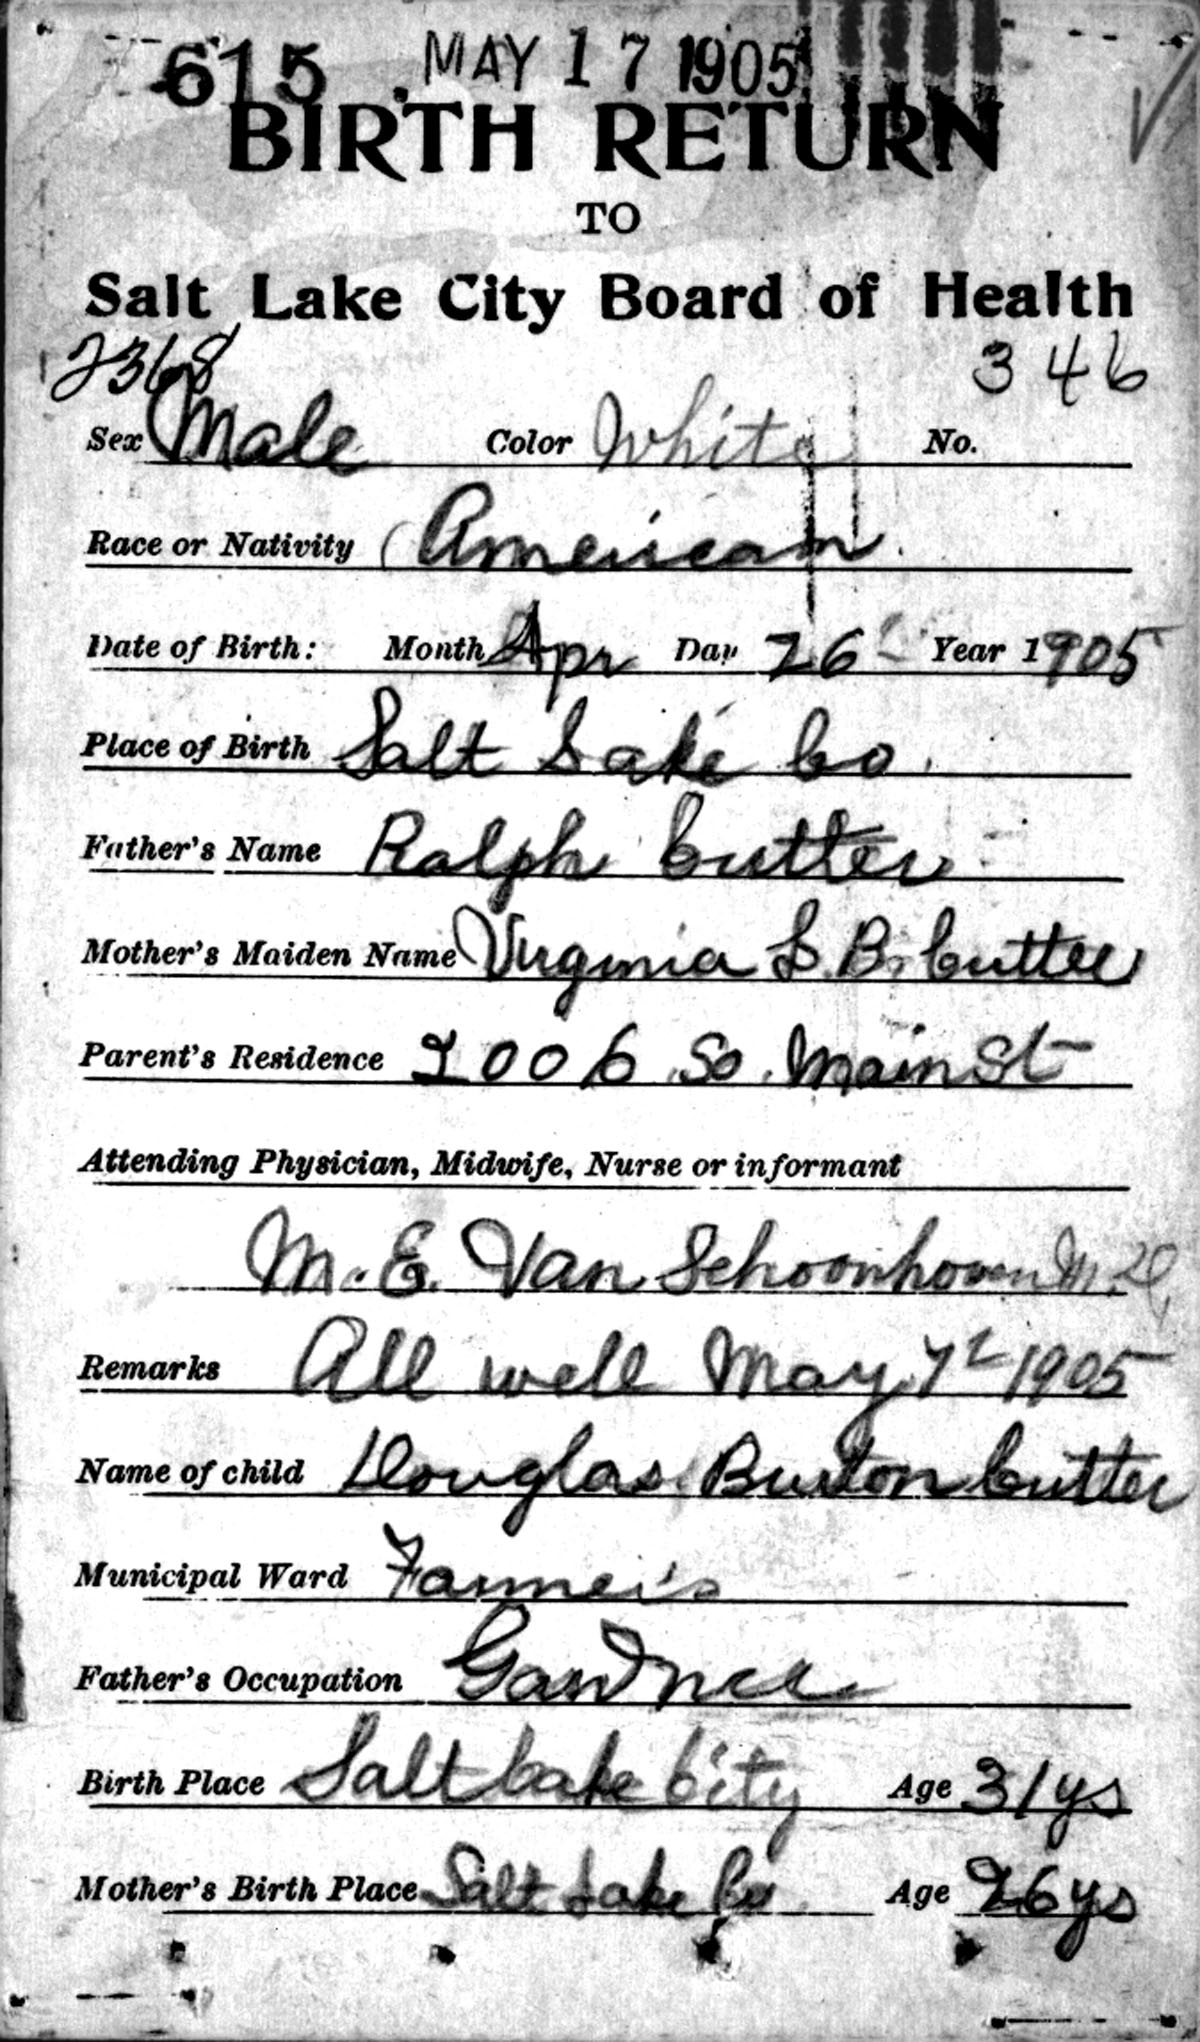 615 MAY 17 1905
BIRTH RETURN
TO
Salt Lake City Board of Health
2368 346
Sex Male Color White No.
Race or Nativity American
Date of Birth: Month Apr Day 26 Year 1905
Place of Birth Salt Lake Co.
Father's Name Ralph Cutler
Mother's Maiden Name Virginia L. B. Cutler
Parent's Residence 2006 So. Main St
Attending Physician, Midwife, Nurse or informant
M. E. Van Schoonhoven M.D.
Remarks All well May 7 1905
Name of child Douglas Burton Cutler
Municipal Ward Farmer's
Father's Occupation Gardner
Birth Place Salt Lake City Age 31 ys
Mother's Birth Place Salt Lake Co Age 26 ys